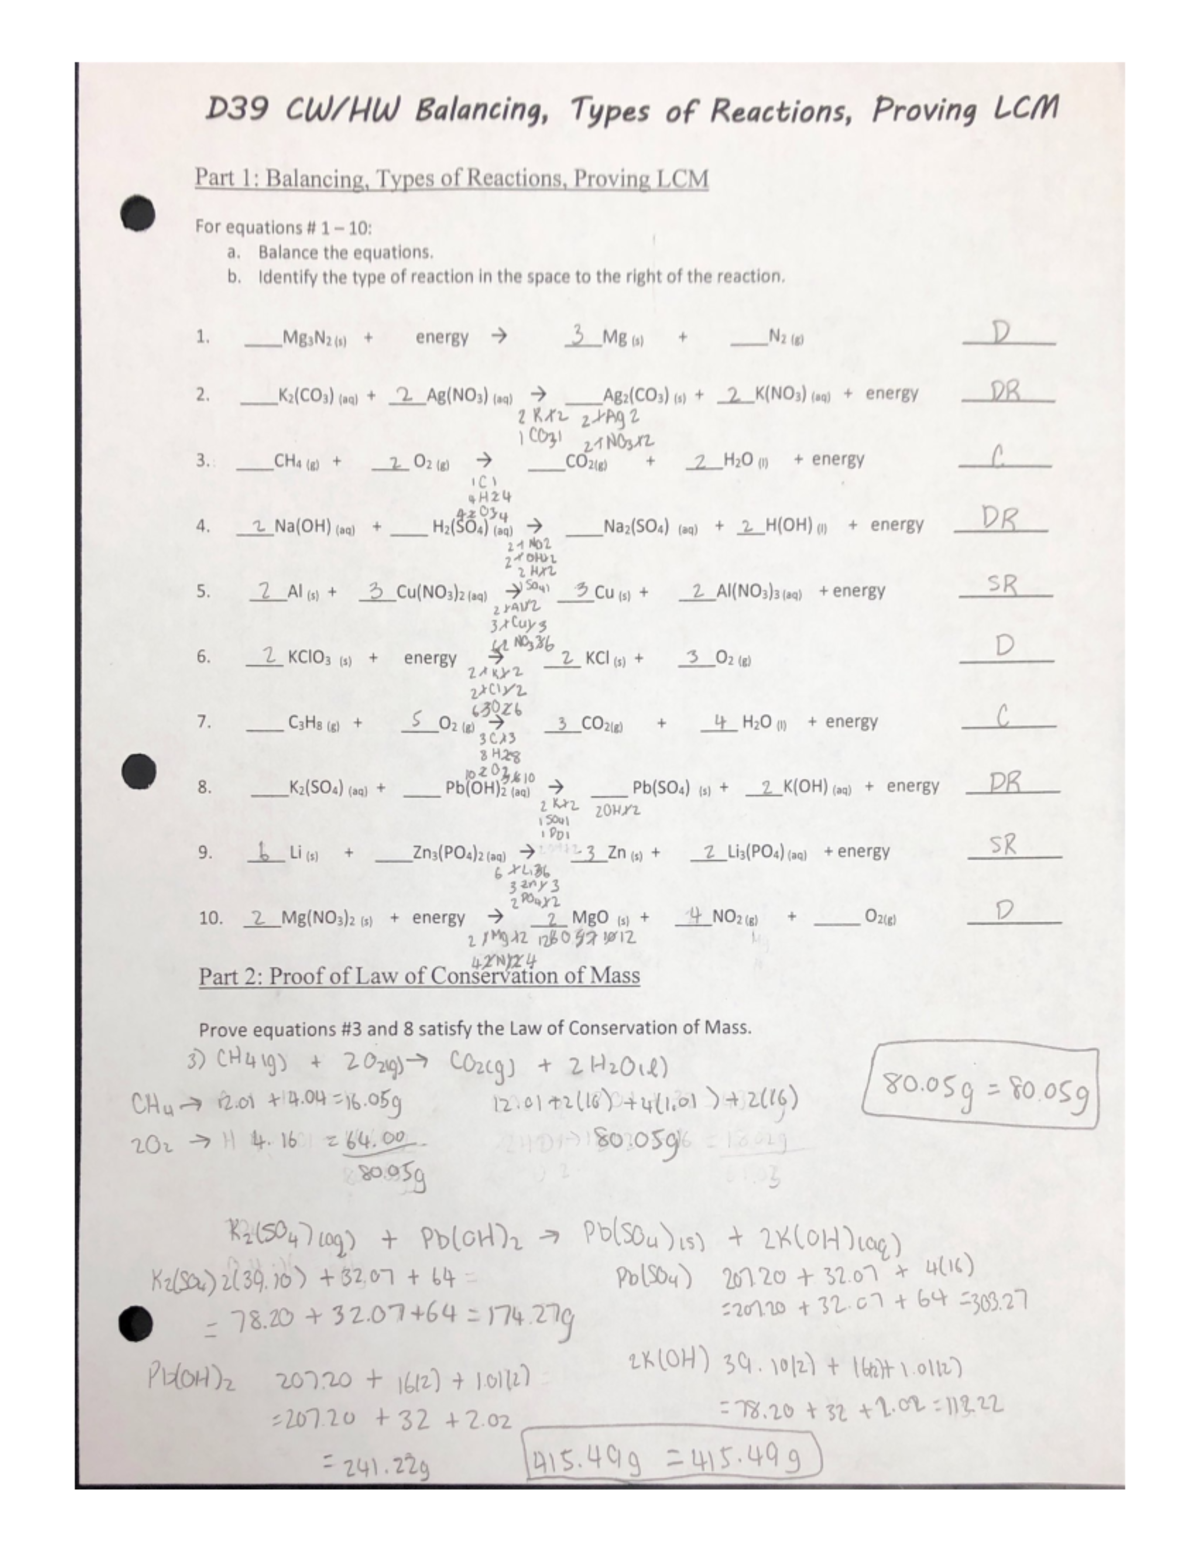 D39 CW/HW Balancing, Types of Reactions, Proving LCM
Part 1: Balancing, Types of Reactions, Proving LCM
For equations # 1 – 10:
a. Balance the equations.
b. Identify the type of reaction in the space to the right of the reaction.
1. ___Mg3N2 (s) + energy → 3 Mg (s) + ___N2 (g) D
2. ___K2(CO3) (aq) + 2 Ag(NO3) (aq) → ___Ag2(CO3) (s) + 2 K(NO3) (aq) + energy DR
2 K x 2 2 x Ag 2
1 CO3 1 2 1 NO3 x 2
3. ___CH4 (g) + 2 O2 (g) → ___CO2(g) + 2 H2O (l) + energy C
1 C 1
4 H 2 4
4 2 O 3 4
4. 2 Na(OH) (aq) + ___ H2(SO4) (aq) → ___Na2(SO4) (aq) + 2 H(OH) (l) + energy DR
2 OH x 2
2 H x 2
1 SO4 1
5. 2 Al (s) + 3 Cu(NO3)2 (aq) → 3 Cu (s) + 2 Al(NO3)3 (aq) + energy SR
2 x Al x 2
3 x Cu x 3
6. 2 KClO3 (s) + energy → 2 KCl (s) + 3 O2 (g) D
2 1 K x 2
2 x Cl x 2
6 3 O 2 6
7. ___ C3H8 (g) + 5 O2 (g) → 3 CO2(g) + 4 H2O (l) + energy C
3 C x 3
8 H 2 8
8. ___K2(SO4) (aq) + ___ Pb(OH)2 (aq) → ___ Pb(SO4) (s) + 2 K(OH) (aq) + energy DR
2 K x 2 2 OH x 2
1 SO4 1
9. 6 Li (s) + ___Zn3(PO4)2 (aq) → 3 Zn (s) + 2 Li3(PO4) (aq) + energy SR
6 x Li 3 6
3 Zn x 3
2 PO4 x 2
10. 2 Mg(NO3)2 (s) + energy → 2 MgO (s) + 4 NO2 (g) + ___ O2(g) D
2 1 Mg x 2
Part 2: Proof of Law of Conservation of Mass
Prove equations #3 and 8 satisfy the Law of Conservation of Mass.
3) CH4(g) + 2O2(g) → CO2(g) + 2H2O(l)
80.05g = 80.05g
CH4 → 12.01 + 4.04 = 16.05g 12.01 + 2(16) + 4(1.01) + 2(16)
2O2 → 4.16 = 64.00 80.05g
80.05g
K2(SO4)(aq) + Pb(OH)2 → Pb(SO4)(s) + 2K(OH)(aq)
K2(SO4) 2(39.10) + 32.07 + 64 = Pb(SO4) 207.20 + 32.07 + 4(16)
= 78.20 + 32.07 + 64 = 174.27g = 207.20 + 32.07 + 64 = 303.27
Pb(OH)2 207.20 + 16(2) + 1.01(2) = 2K(OH) 39.10(2) + 16(2) + 1.01(2)
= 207.20 + 32 + 2.02 = 78.20 + 32 + 2.02 = 112.22
= 241.22g 415.49g = 415.49g